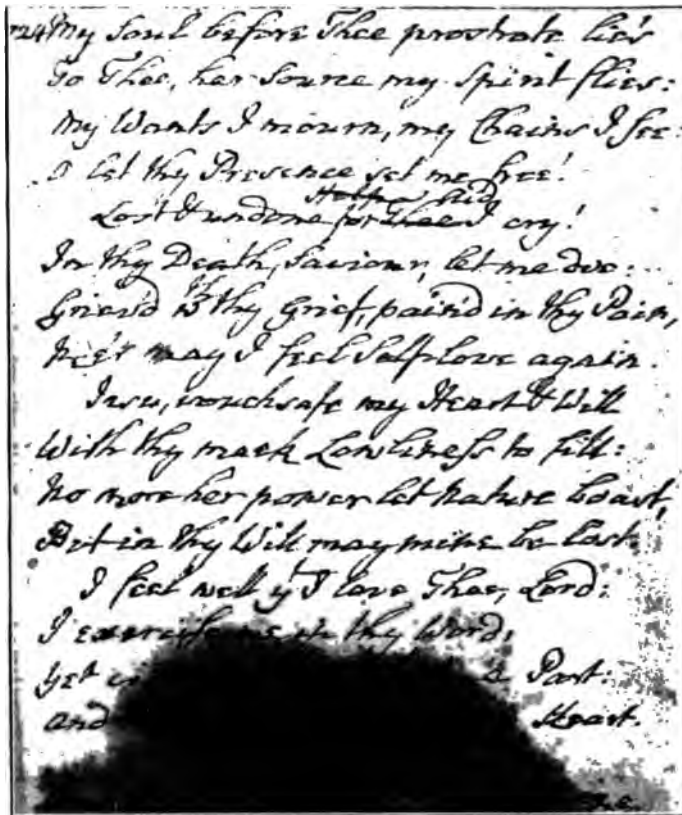 724 My Soul before Thee prostrate lies
To Thee, her Source my Spirit flies:
My Wants I mourn, my Chains I see:
O let thy Presence set me free!
Lost & undone for Thee I cry!
In thy Death, Saviour, let me dye:
Griev'd wth thy Grief, pain'd in thy Pain,
Ne'er may I feel Self-love again.
Jesu, vouchsafe my Heart & Will
With thy meek Lowliness to fill:
No more her power let Nature boast,
But in thy Will may mine be lost.
I feel well yt I love Thee, Lord:
I exercise me in thy Word;
Yet a Part:
and Heart.